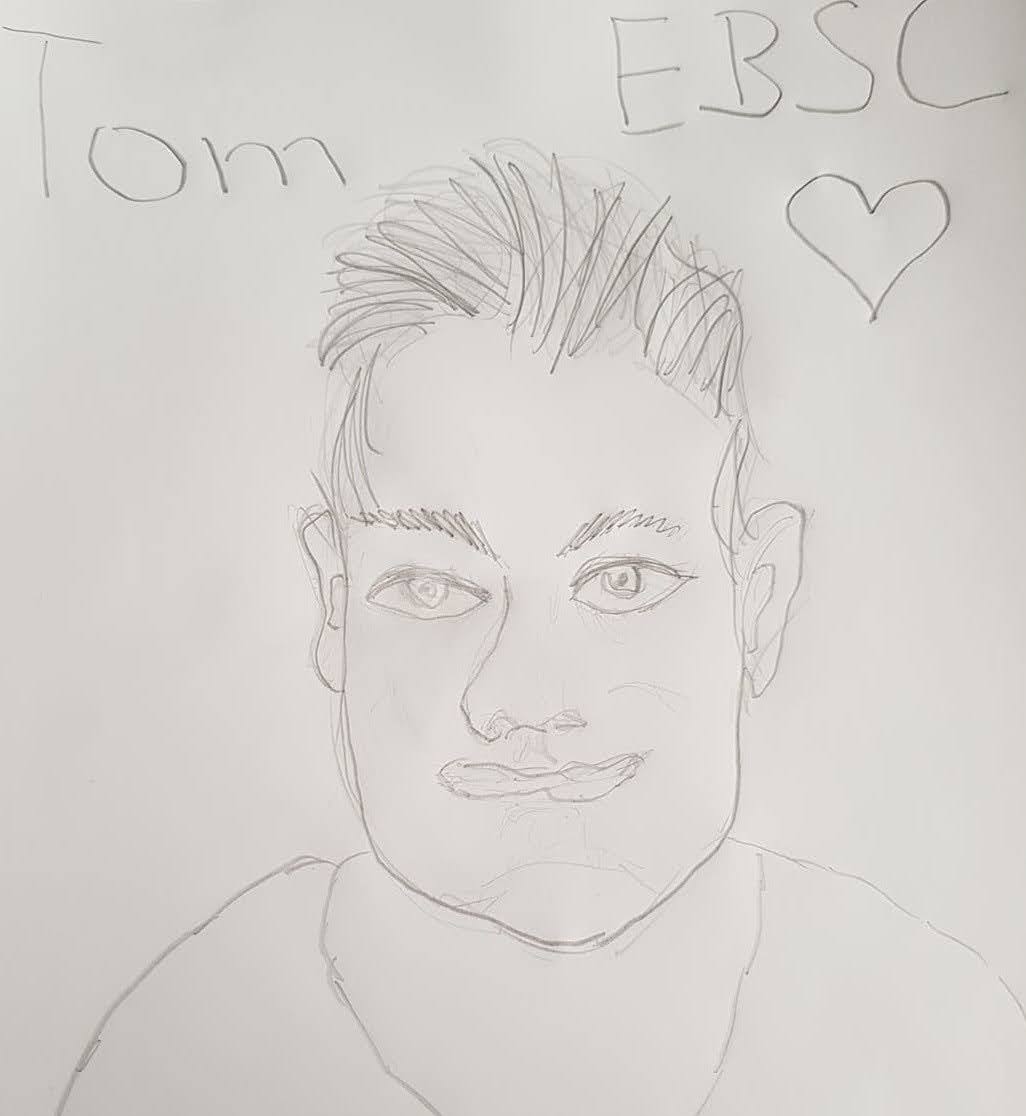 Tom
EBSC